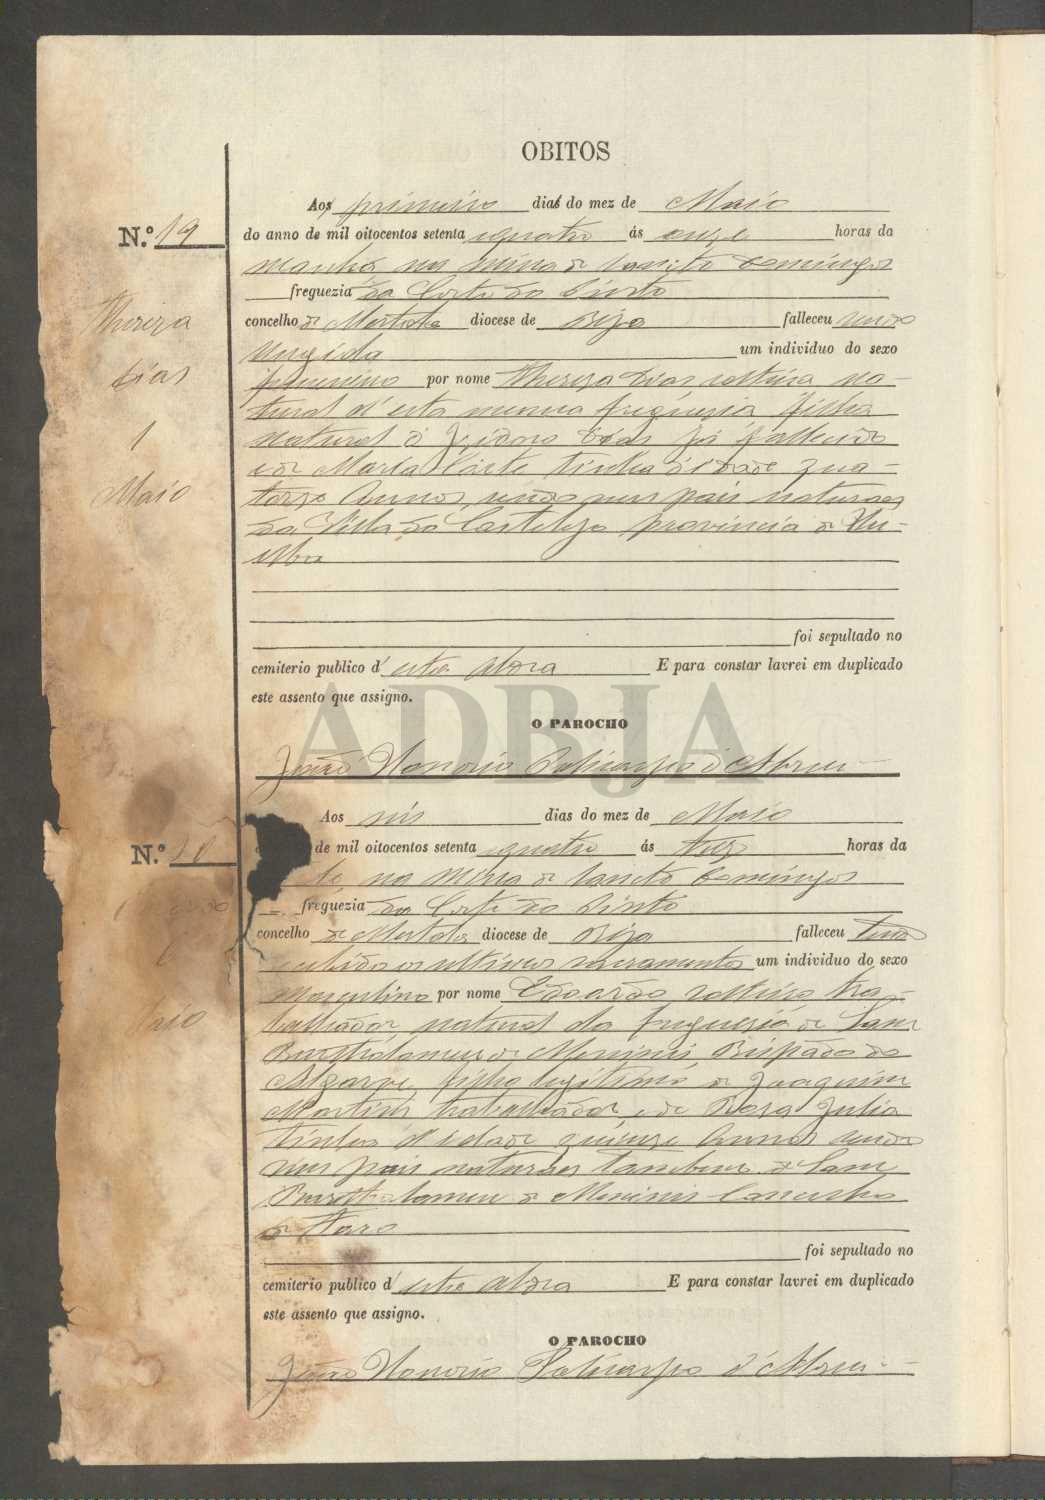 OBITOS
Aos primeiro dias do mez de Maio
N.º 19
do anno de mil oitocentos setenta equatro ás onze horas da
manhã na Mina de Sancto Domingos
freguezia da Corte do Pinto
Thereza
concelho de Mertola diocese de Beja falleceu sendo
ungida um individuo do sexo
Dias
femenino por nome Thereza Dias solteira na-
tural d'esta mesma freguezia filha
1
natural d Izidoro Dias já fallecido
e de Maria tinha d'idade qua-
Maio
torze Annos, sendo seus pais naturaes
da Villa da provincia de Hu-
elva
foi sepultado no
cemiterio publico d'esta aldea E para constar lavrei em duplicado
este assento que assigno.
O PAROCHO
ADBJA
João Honorio Policarpo d'Abreu
Aos seis dias do mez de Maio
N.º
de mil oitocentos setenta equatro ás trez horas da
de na Mina de Sancto Domingos
freguezia da Corte do Pinto
concelho de Mertola diocese de Beja falleceu tendo
6
recebido os ultimos sacramentos um individuo do sexo
masculino por nome Edoardo solteiro tra-
Maio
balhador natural da freguezia de Sam
Barthalomeu de Messines Bispado do
Algarve, filho legitimo de Joaquim
Martins trabalhador, e de Roza Julia
tinha d'idade quinze Annos sendo
seus pais naturaes tambem de Sam
Barthalomeu de Messines Concelho
de Faro
foi sepultado no
cemiterio publico d'esta aldea E para constar lavrei em duplicado
este assento que assigno.
O PAROCHO
João Honorio Policarpo d'Abreu